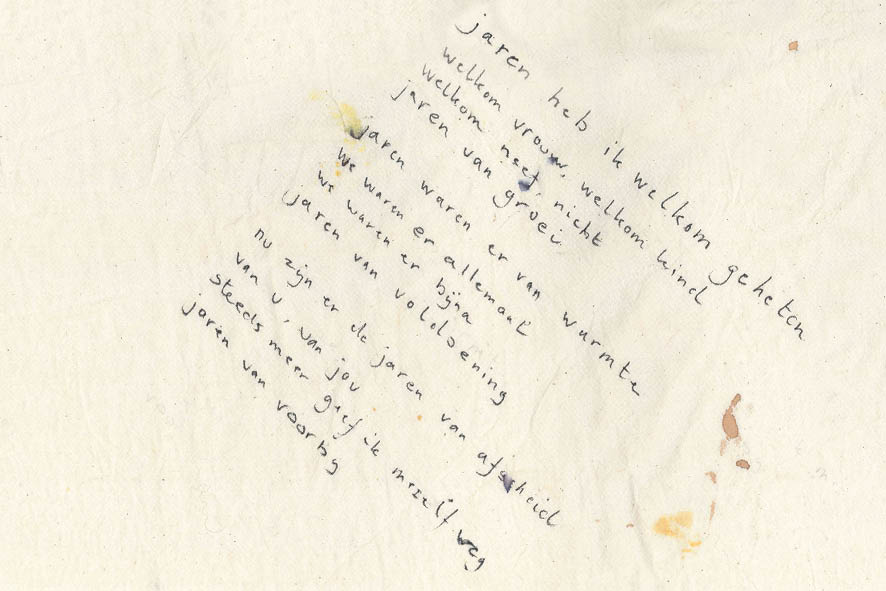 jaren heb ik welkom geheten
welkom vrouw, welkom kind
welkom neef, nicht
jaren van groei
jaren waren er van warmte
we waren er allemaal
we waren er bijna
jaren van voldoening
nu zijn er de jaren van afscheid
van u, van jou
steeds meer geef ik mezelf weg
jaren van voorbij